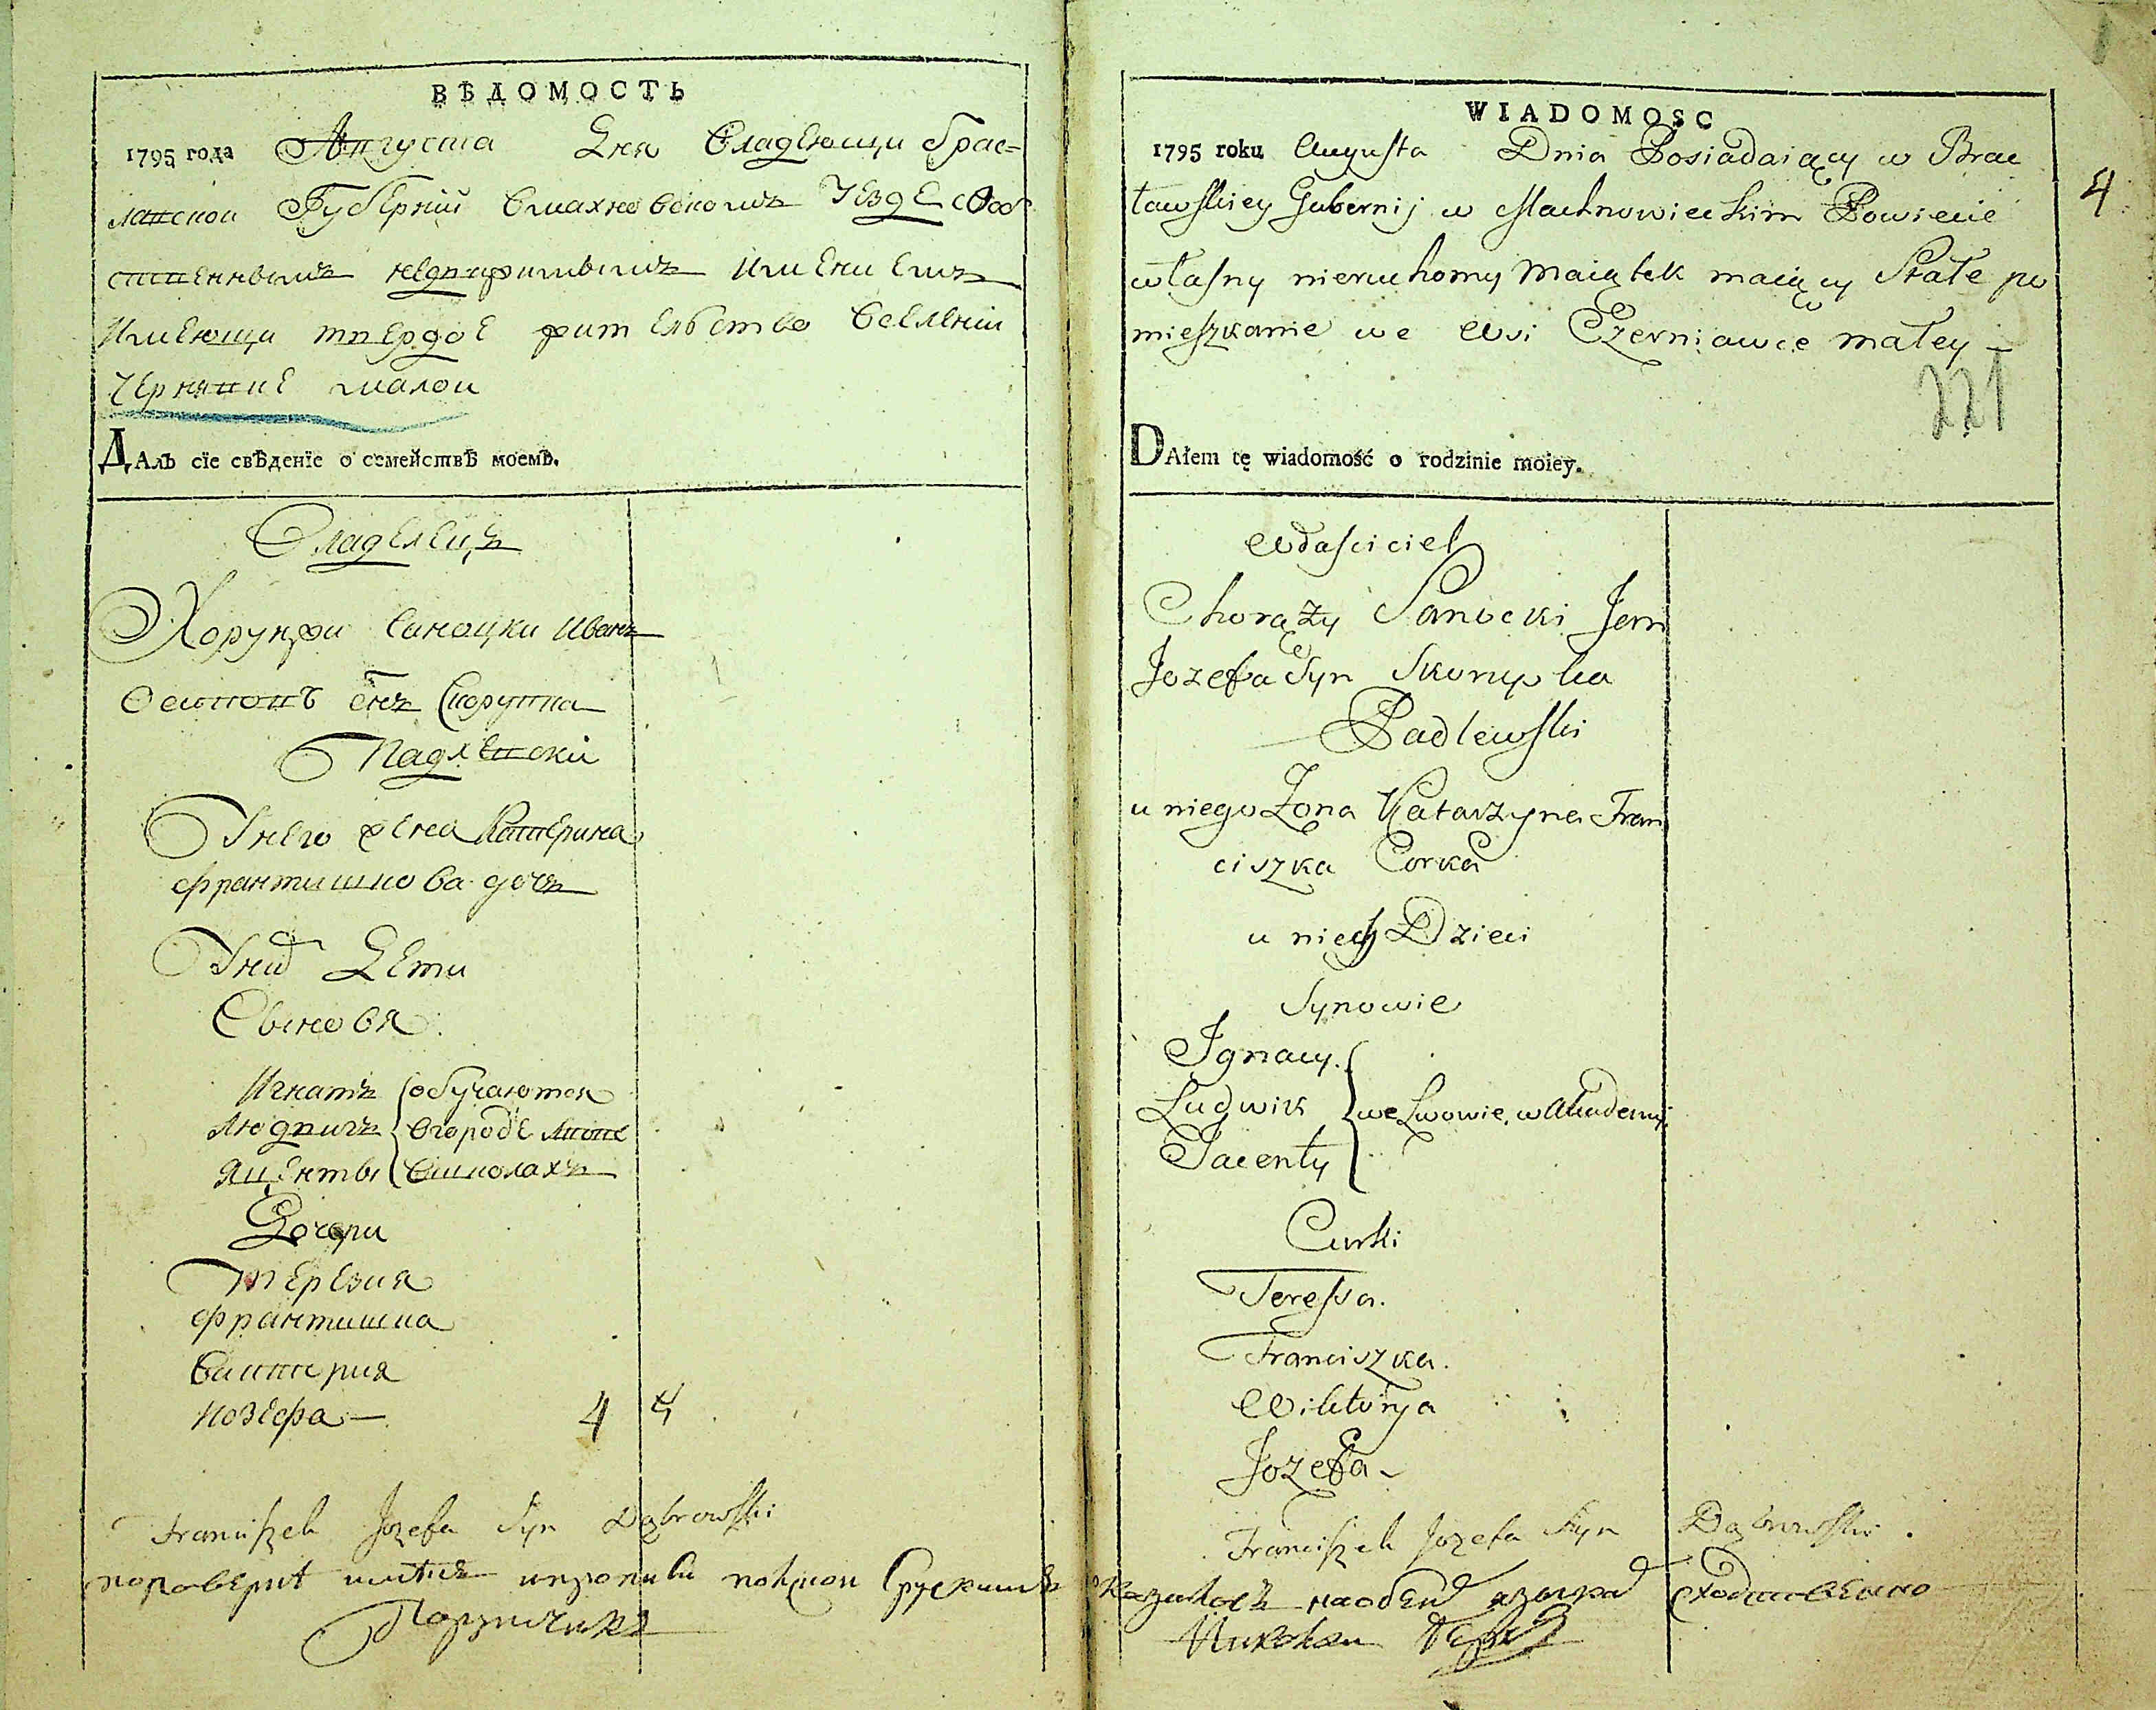 ВѢДОМОСТЬ
1795 года Августа Дня Владеющи Брас=
лавскои Губернии Вмахновскомъ Уезде собс
ственнымъ недвижимымъ Имениемъ
Имеющи твердое жителъство Вселении
Чернявке малои
ДАлъ сїе свѣденїе о семействѣ моемъ.
Владелецъ
Хорунжи Саноцки Иванъ
Осиповъ Снъ Скорупка
Падлевскїи
Унего жена Катерина
Франтишкова дочъ
Унихъ Дети
Сыновя
Игнатъ обучаются
Людвигъ Вгороде Лвове
Яценты Вшколахъ
Дочери
Терезия
Франтишка
Виктерия
Иозефа — 4 4
Franciszek Jozefa Syn Dąbrowski
WIADOMOSC
1795 roku Augusta Dnia Posiadaiący w Brac
ławskiey Gubernij w Machnowieckim Powiecie
własny nieruchomy Maiątek maiący Stałe po
mieszkanie we Wsi Czerniawce małey —
4
221
DAłem tę wiadomość o rodzinie moiey.
Własciciel
Chorąży Sanocki Jan
Jozefa Syn Skorupka
Padlewski
u niego Zona Katarzyna Fran
ciszka Corka
u nich Dzieci
Synowie
Ignacy.
Ludwik we Lwowie, w Akademij.
Jacenty
Curki
Teressa.
Franciszka.
Wiktorya
Jozefa –
Franciszek Jozefa Syn Dąbrowski.